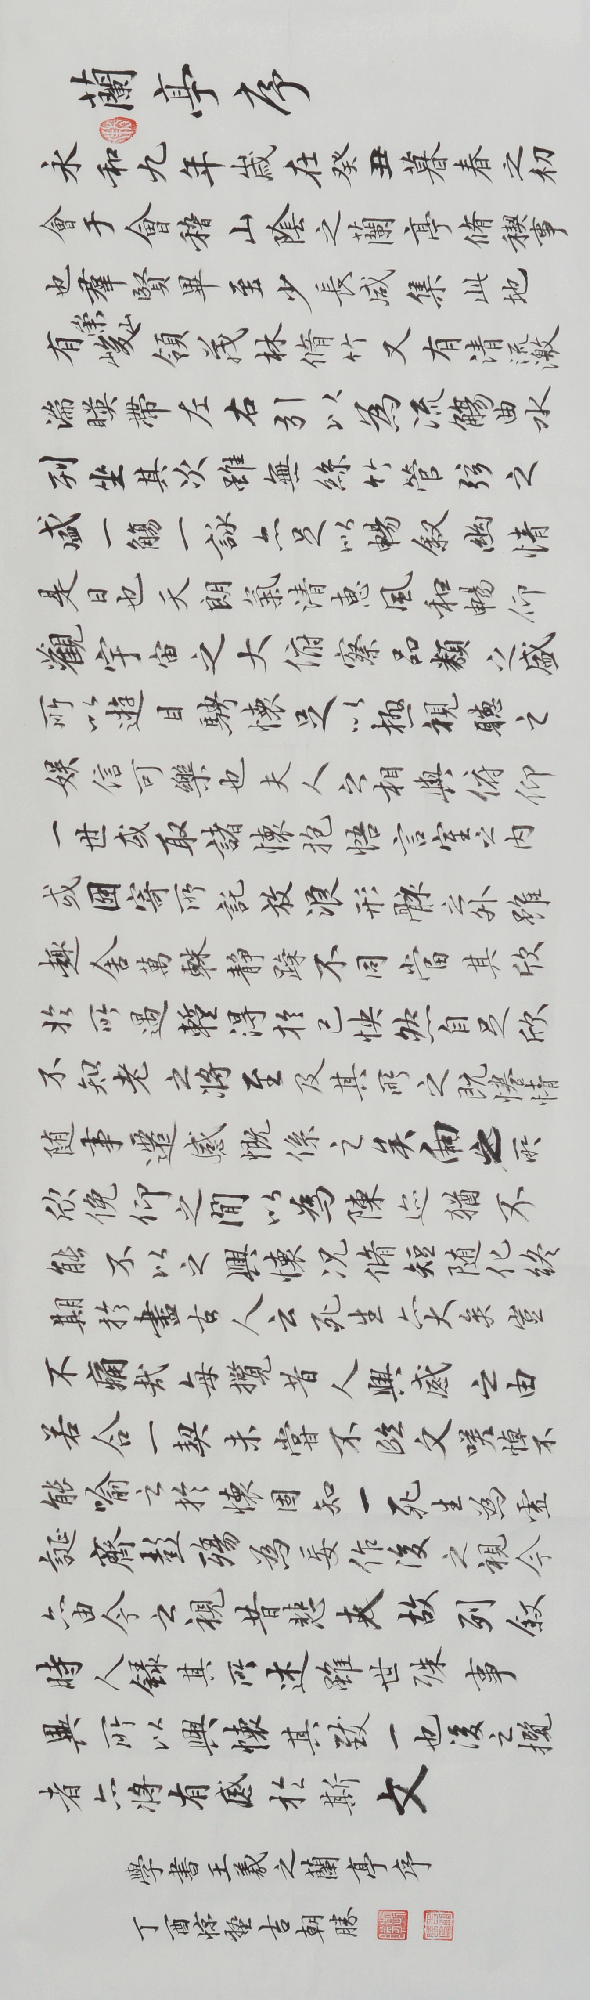 蘭亭序
永和九年歲在癸丑暮春之初
會于會稽山陰之蘭亭脩禊事
也羣賢畢至少長咸集此地
有崇山峻領茂林脩竹又有清流激
湍暎帶左右引以為流觴曲水
列坐其次雖無絲竹管弦之
盛一觴一詠亦足以暢敘幽情
是日也天朗氣清惠風和暢仰
觀宇宙之大俯察品類之盛
所以遊目騁懷足以極視聽之
娛信可樂也夫人之相與俯仰
一世或取諸懷抱悟言室之內
或因寄所託放浪形骸之外雖
趣舍萬殊靜躁不同當其欣
於所遇蹔得於己怏然自足欣
不知老之將至及其所之既惓情
随事遷感慨係之矣向之所
欣俛仰之間以為陳迹猶不
能不以之興懷況脩短随化終
期於盡古人云死生亦大矣豈
不痛哉每攬昔人興感之由
若合一契未嘗不臨文嗟悼不
能喻之於懷固知一死生為虛
誕齊彭殤為妄作後之視今
亦由今之視昔悲夫故列敘
時人錄其所述雖世殊事
異所以興懷其致一也後之攬
者亦將有感於斯文
學書王羲之蘭亭序
丁酉惊蟄吉朝勝